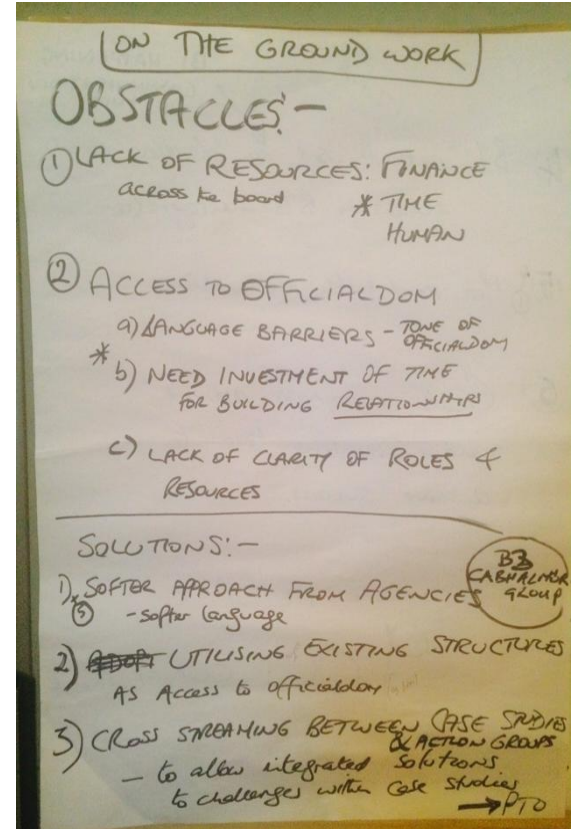 ON THE GROUND WORK
OBSTACLES:-
① LACK OF RESOURCES: FINANCE
across the board * TIME
HUMAN
② ACCESS TO OFFICIALDOM
a) LANGUAGE BARRIERS - TONE OF
OFFICIALDOM
* b) NEED INVESTMENT OF TIME
FOR BUILDING RELATIONSHIPS
c) LACK OF CLARITY OF ROLES &
RESOURCES
SOLUTIONS:-
B3
GROUP
1) SOFTER APPROACH FROM AGENCIES
- softer language
2) UTILISING EXISTING STRUCTURES
AS Access to officialdom
3) CROSS STREAMING BETWEEN CASE STUDIES
& ACTION GROUPS
- to allow integrated solutions
to challenges within case studies
→ PTO